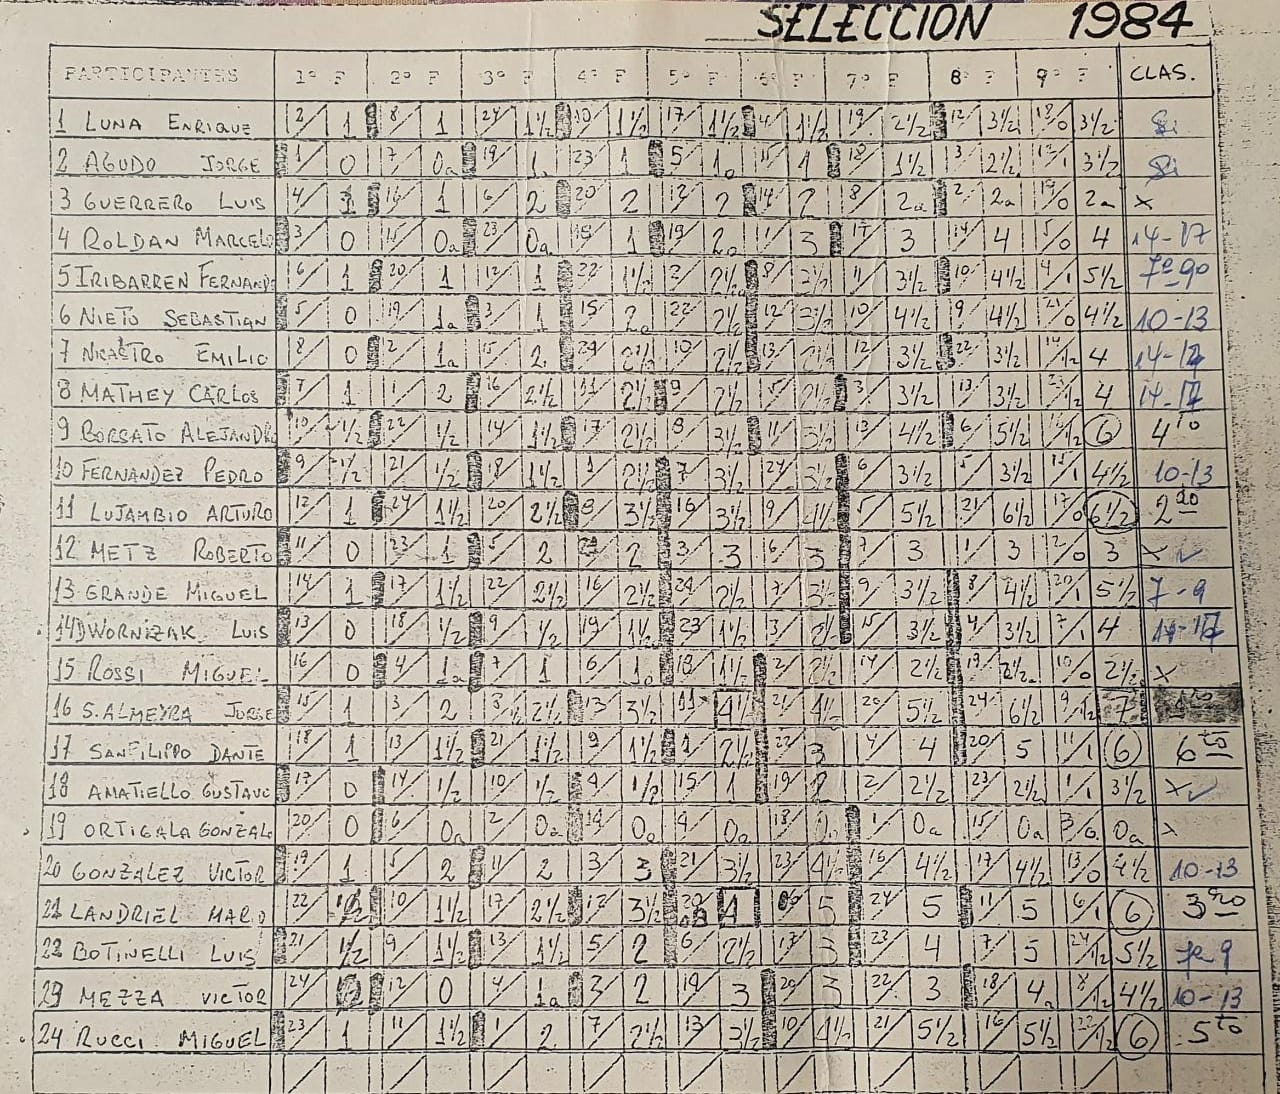 SELECCION 1984
PARTICIPANTES 1º F 2º F 3º F 4º F 5º F 6º F 7º F 8º F 9º F CLAS.
1 LUNA ENRIQUE 2/ 1 8/ 1 24/ 1½ 10/ 1½ 17/ 1½ 4/ 1½ 19/ 2½ 12/ 3½ 18/0 3½ Si
2 AGUDO JORGE 1/ 0 7/ 0a 19/ 1 23/ 1 5/ 1 1 18/ 1½ 3/ 2½ 12/1 3½ Si
3 GUERRERO LUIS 4/ 1 16/ 1 6/ 2 20/ 2 12/ 2 14/ 2 8/ 2a 2/ 2a 19/0 2a x
4 ROLDAN MARCELO 3/ 0 15/ 0a 23/ 0a 18/ 1 19/ 2 1/ 3 17/ 3 14/ 4 5/0 4 14-17
5 IRIBARREN FERNANDO 6/ 1 20/ 1 12/ 1 22/ 1½ 2/ 2½ 8/ 3½ 11/ 3½ 10/ 4½ 4/1 5½ 7º-9º
6 NIETO SEBASTIAN 5/ 0 19/ 1a 3/ 1 15/ 2 22/ 2½ 12/ 3½ 10/ 4½ 9/ 4½ 21/0 4½ 10-13
7 NICASTRO EMILIO 8/ 0 2/ 1a 15/ 2 24/ 2½ 10/ 2½ 13/ 2½ 12/ 3½ 22/ 3½ 14/½ 4 14-17
8 MATHEY CARLOS 7/ 1 1/ 2 16/ 2½ 11/ 2½ 9/ 2½ 15/ 2½ 3/ 3½ 13/ 3½ 23/½ 4 14-17
9 BORSATO ALEJANDRO 10/ ½ 22/ ½ 14/ 1½ 17/ 2½ 8/ 3½ 11/ 3½ 13/ 4½ 6/ 5½ 16/½ 6 4to
10 FERNANDEZ PEDRO 9/ ½ 21/ ½ 18/ 1½ 1/ 2½ 7/ 3½ 24/ 3½ 6/ 3½ 5/ 3½ 15/1 4½ 10-13
11 LUJAMBIO ARTURO 12/ 1 24/ 1½ 20/ 2½ 8/ 3½ 16/ 3½ 9/ 4½ 5/ 5½ 21/ 6½ 17/0 6½ 2do
12 METZ ROBERTO 11/ 0 23/ 1 5/ 2 21/ 2 3/ 3 16/ 3 7/ 3 1/ 3 2/0 3 x ✓
13 GRANDE MIGUEL 14/ 1 17/ 1½ 22/ 2½ 16/ 2½ 24/ 2½ 7/ 3½ 9/ 3½ 8/ 4½ 20/1 5½ 7-9
14 DWORNIZAK LUIS 13/ 0 18/ ½ 9/ ½ 19/ 1½ 23/ 1½ 3/ 2½ 15/ 3½ 4/ 3½ 7/1 4 14-17
15 ROSSI MIGUEL 16/ 0 4/ 1a 7/ 1 6/ 1 18/ 1½ 2/ 2½ 14/ 2½ 19/ 2½ 10/0 2½ x
16 S. ALMEYRA JORGE 15/ 1 3/ 2 8/ 2½ 13/ 3½ 11 4½ 21/ 4½ 20/ 5½ 24/ 6½ 9/½ 7 1ro
17 SANFILIPPO DANTE 18/ 1 13/ 1½ 21/ 1½ 9/ 1½ 1/ 2½ 22/ 3 4/ 4 20/ 5 11/1 6 6to
18 AMATIELLO GUSTAVO 17/ 0 14/ ½ 10/ ½ 4/ ½ 15/ 1 19/ 2 2/ 2½ 23/ 2½ 1/1 3½ x✓
19 ORTIGALA GONZALO 20/ 0 6/ 0a 2/ 0a 14/ 0a 4/ 0a 18/ 0a 1/ 0a 15/ 0a 3/ 0a x
20 GONZALEZ VICTOR 19/ 1 5/ 2 11/ 2 3/ 3 21/ 3½ 23/ 4½ 16/ 4½ 17/ 4½ 13/0 4½ 10-13
21 LANDRIEL MARIO 22/ ½ 10/ 1½ 17/ 2½ 12/ 3½ 20 4 16/ 5 24/ 5 11/ 5 6/1 6 3ero
22 BOTINELLI LUIS 21/ ½ 9/ 1½ 13/ 1½ 5/ 2 6/ 2½ 17/ 3 23/ 4 7/ 5 24/½ 5½ 7-9
23 MEZZA VICTOR 24/ 0 12/ 0 4/ 1a 3/ 2 14/ 3 20/ 3 22/ 3 18/ 4 8/½ 4½ 10-13
24 RUCCI MIGUEL 23/ 1 11/ 1½ 1/ 2 7/ 2½ 13/ 3½ 10/ 4½ 21/ 5½ 16/ 5½ 22/½ 6 5to